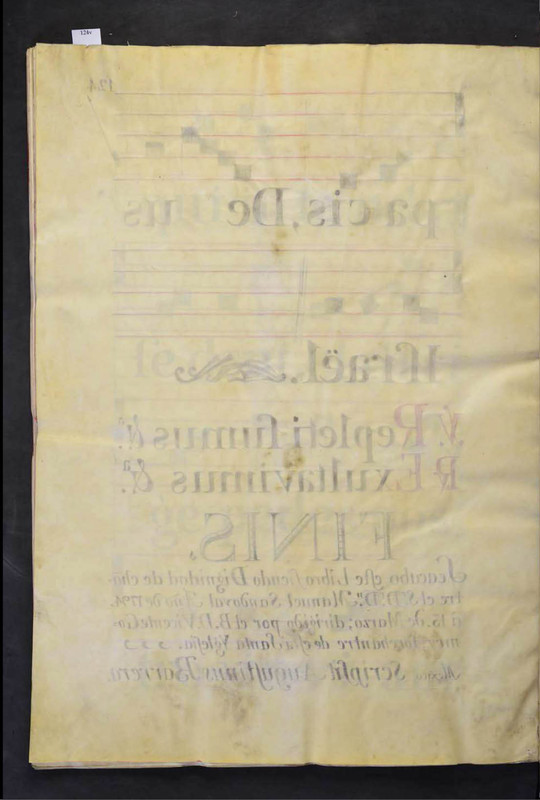 124v
124
pacis, Deus
Israël.
V. Repleti sumus &.ª
R Exultavimus &.ª
FINIS.
Se acabó este Libro siendo Dignidad de chan-
tre el S.D.D. Manuel Sandoval Año de 1794.
á 15. de Marzo; dirigido por el B.D. Vicente
Sochantre de esta Santa Yglesia.
Scripsit Augustinus Barrera